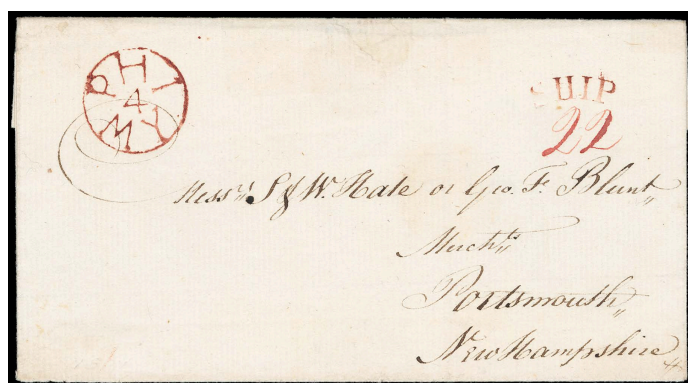 PHI
4
MY
SHIP
22
Mess.rs S & W. Hale or Geo. F. Blunt
Mercht.s
Portsmouth
New Hampshire